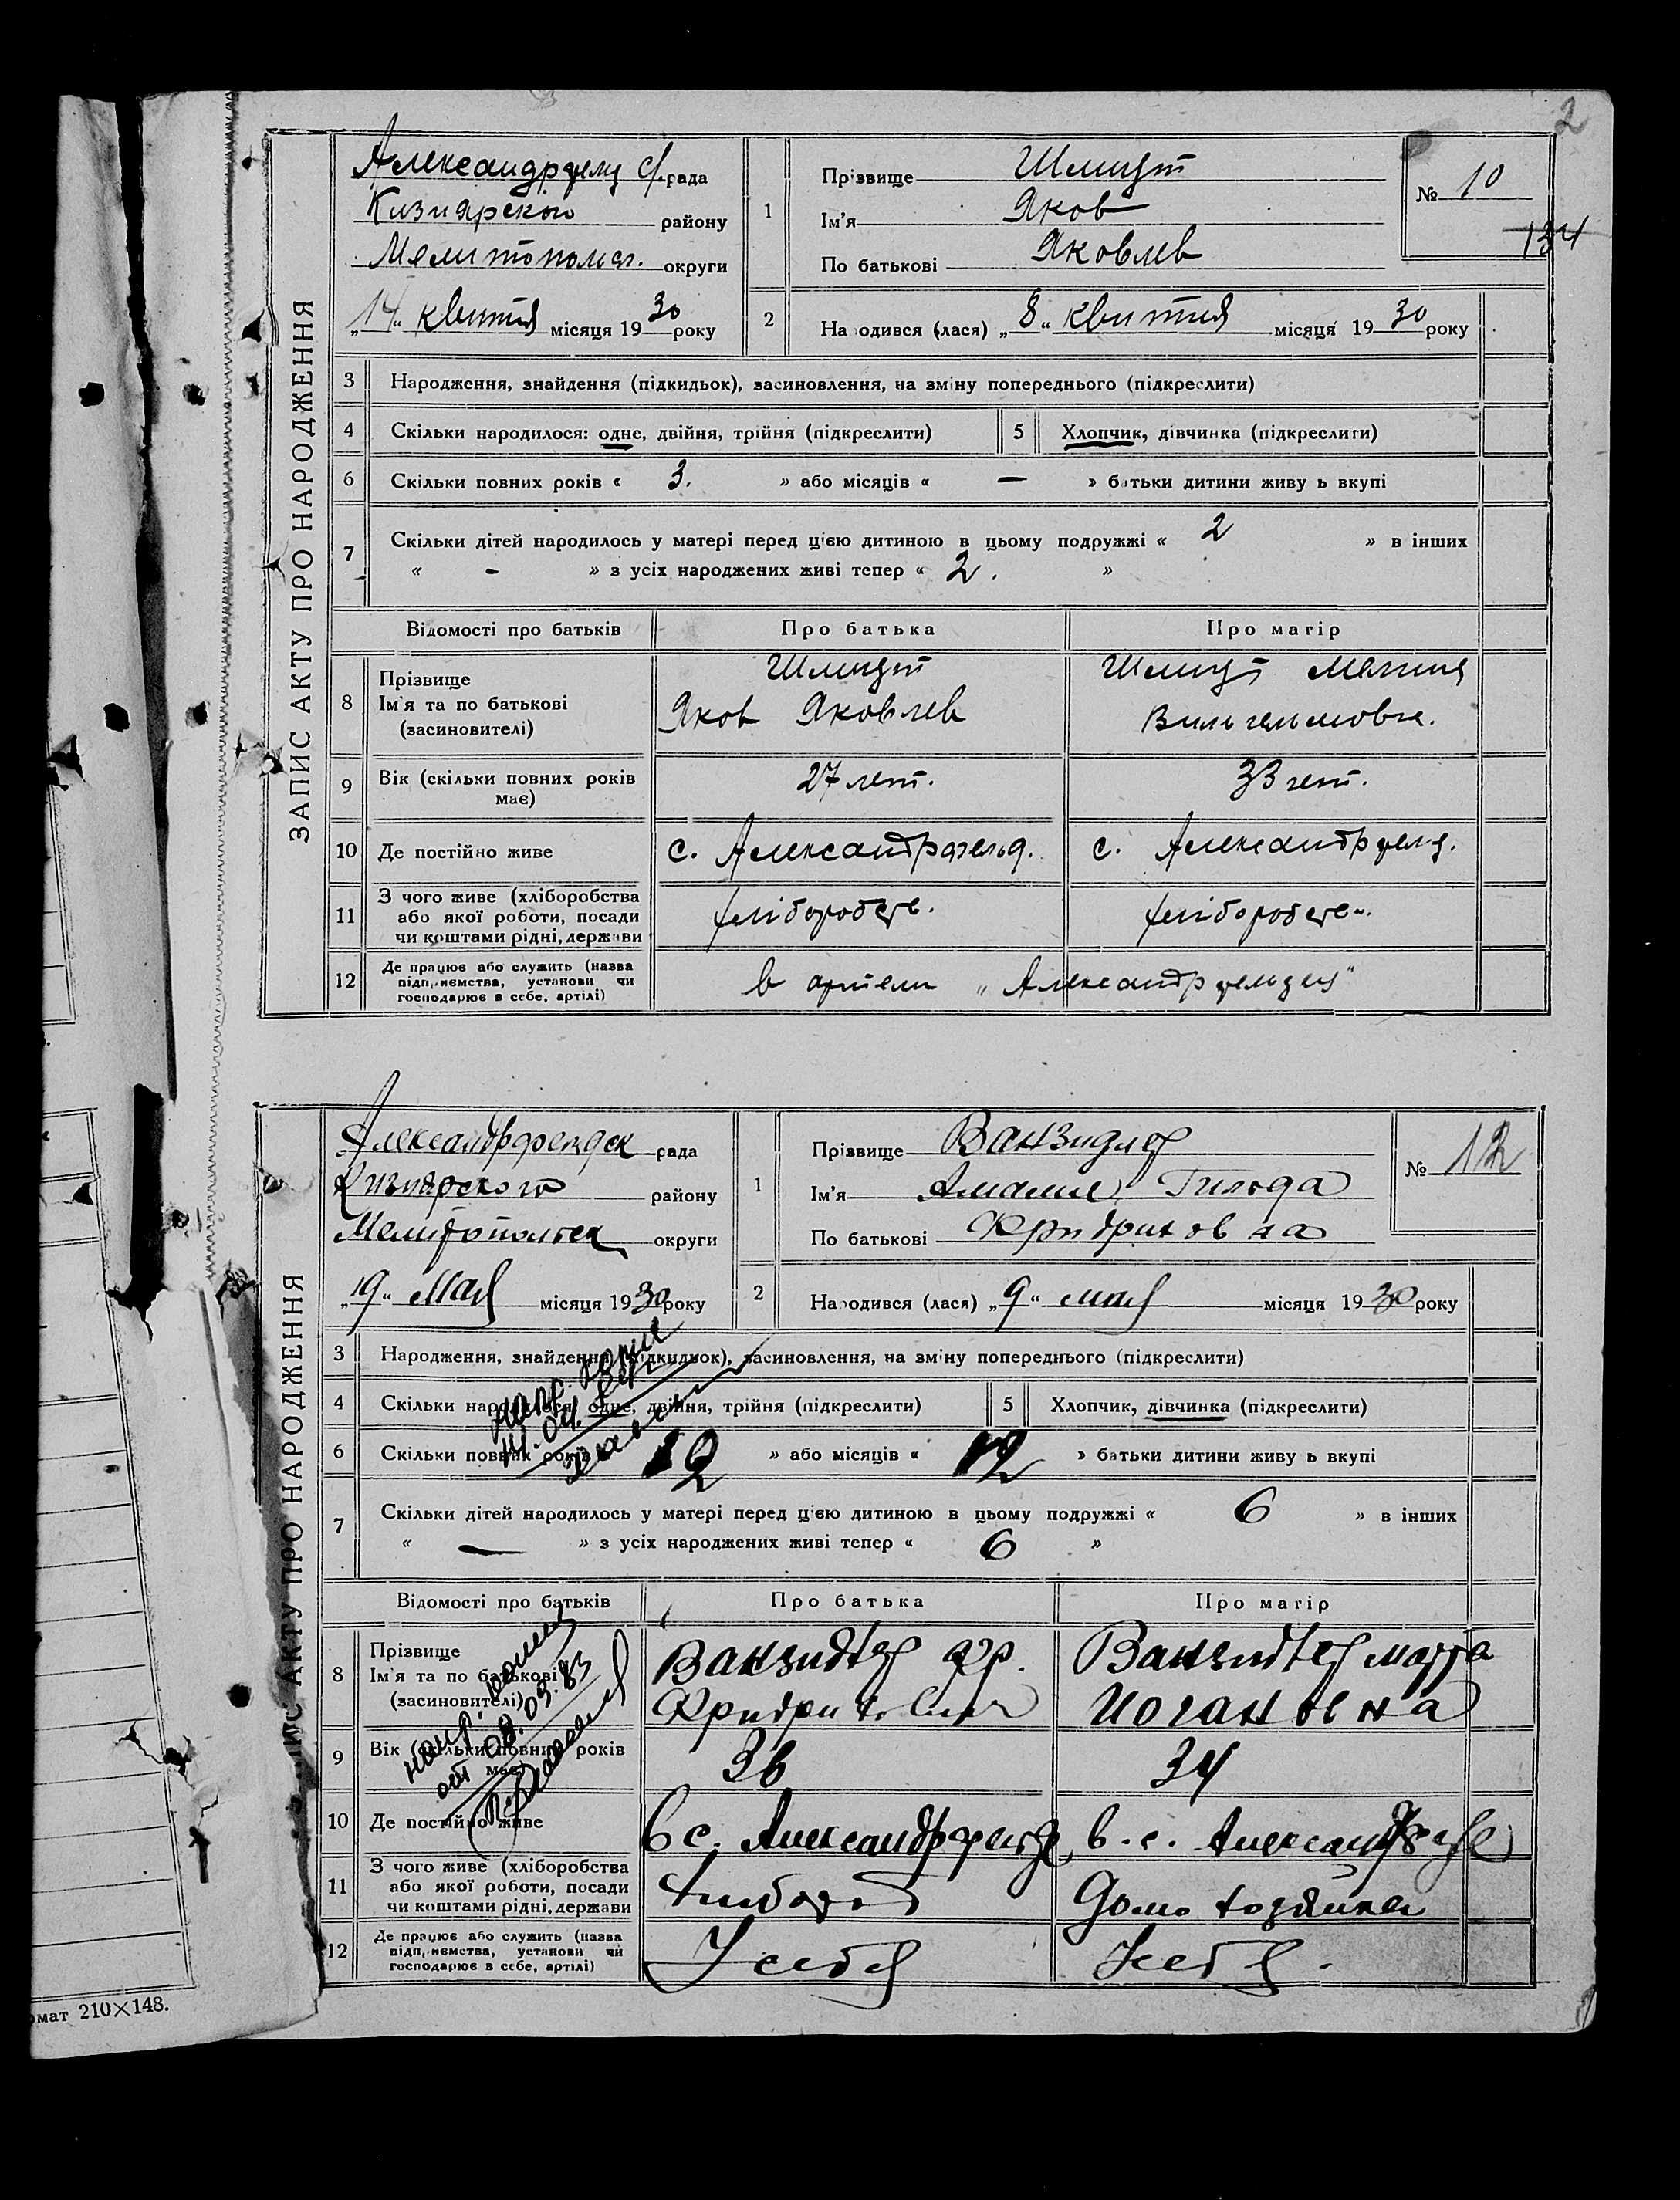 2
ЗАПИС АКТУ ПРО НАРОДЖЕННЯ
Александрфельд с/рада
Кизиярского району
Мелитопольск. округи
„14“ квитня місяця 1930 року
1
Прізвище Шмидт
Ім'я Яков
По батькові Яковлев
№ 10
134
2
Народився (лася) „8“ квитня місяця 1930 року
3 Народження, знайдення (підкидьок), засиновлення, на зміну попереднього (підкреслити)
4 Скільки народилося: одне, двійня, трійня (підкреслити)
5 Хлопчик, дівчинка (підкреслити)
6 Скільки повних років « 3. » або місяців « — » батьки дитини живуть вкупі
7 Скільки дітей народилось у матері перед цією дитиною в цьому подружжі « 2 » в інших
« - » з усіх народжених живі тепер « 2. »
Відомості про батьків Про батька Про матір
8 Прізвище
Ім'я та по батькові
(засиновителі)
Шмидт
Яков Яковлев
Шмидт
Вильгельмовна.
9 Вік (скільки повних років
має)
27 лет.
33 лет.
10 Де постійно живе
с. Александрфельд.
с. Александрфельд.
11 З чого живе (хліборобства
або якої роботи, посади
чи коштами рідні, держави
хліборобств.
хліборобств.
12 Де працює або служить (назва
підприємства, установи чи
господарює в себе, артілі)
в артели „Александрфельдец“
ЗАПИС АКТУ ПРО НАРОДЖЕННЯ
Александрфельдск рада
Кизиярского району
Мелитопольск округи
„19“ Мая місяця 1930 року
1
Прізвище Ванзидлер
Ім'я Амалия, Гильда
По батькові Фридриховна
№ 12
2
Народився (лася) „9“ мая місяця 1930 року
3 Народження, знайдення (підкидьок), засиновлення, на зміну попереднього (підкреслити)
4 Скільки народилося: одне, двійня, трійня (підкреслити)
5 Хлопчик, дівчинка (підкреслити)
6 Скільки повних років « 12 » або місяців « » батьки дитини живуть вкупі
7 Скільки дітей народилось у матері перед цією дитиною в цьому подружжі « 6 » в інших
« — » з усіх народжених живі тепер « 6 »
Відомості про батьків Про батька Про матір
8 Прізвище
Ім'я та по батькові
(засиновителі)
Ванзидлер Фр.
Фридрихович
Ванзидлер Марта
Иогановна
9 Вік (скільки повних років
має)
36
34
10 Де постійно живе
в с. Александрфельде
в. с. Александрфельде
11 З чого живе (хліборобства
або якої роботи, посади
чи коштами рідні, держави
хлибороб
Домохозяйка
12 Де працює або служить (назва
підприємства, установи чи
господарює в себе, артілі)
У себя
У себя.
напр. копия
напр. копия
от 08.09.83
формат 210×148.